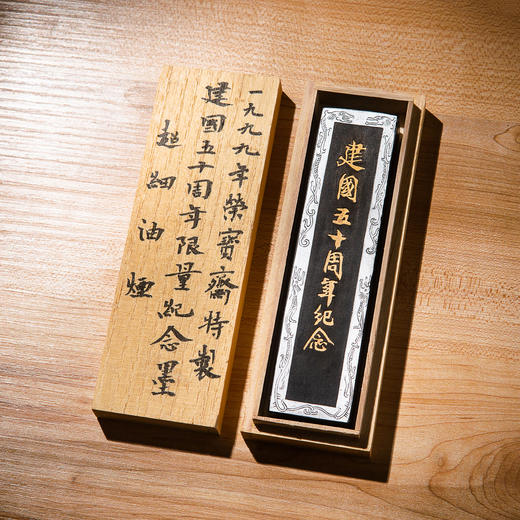 一九九九年榮寶齋特製
建國五十周年限量紀念墨
超細油煙
建國五十周年紀念